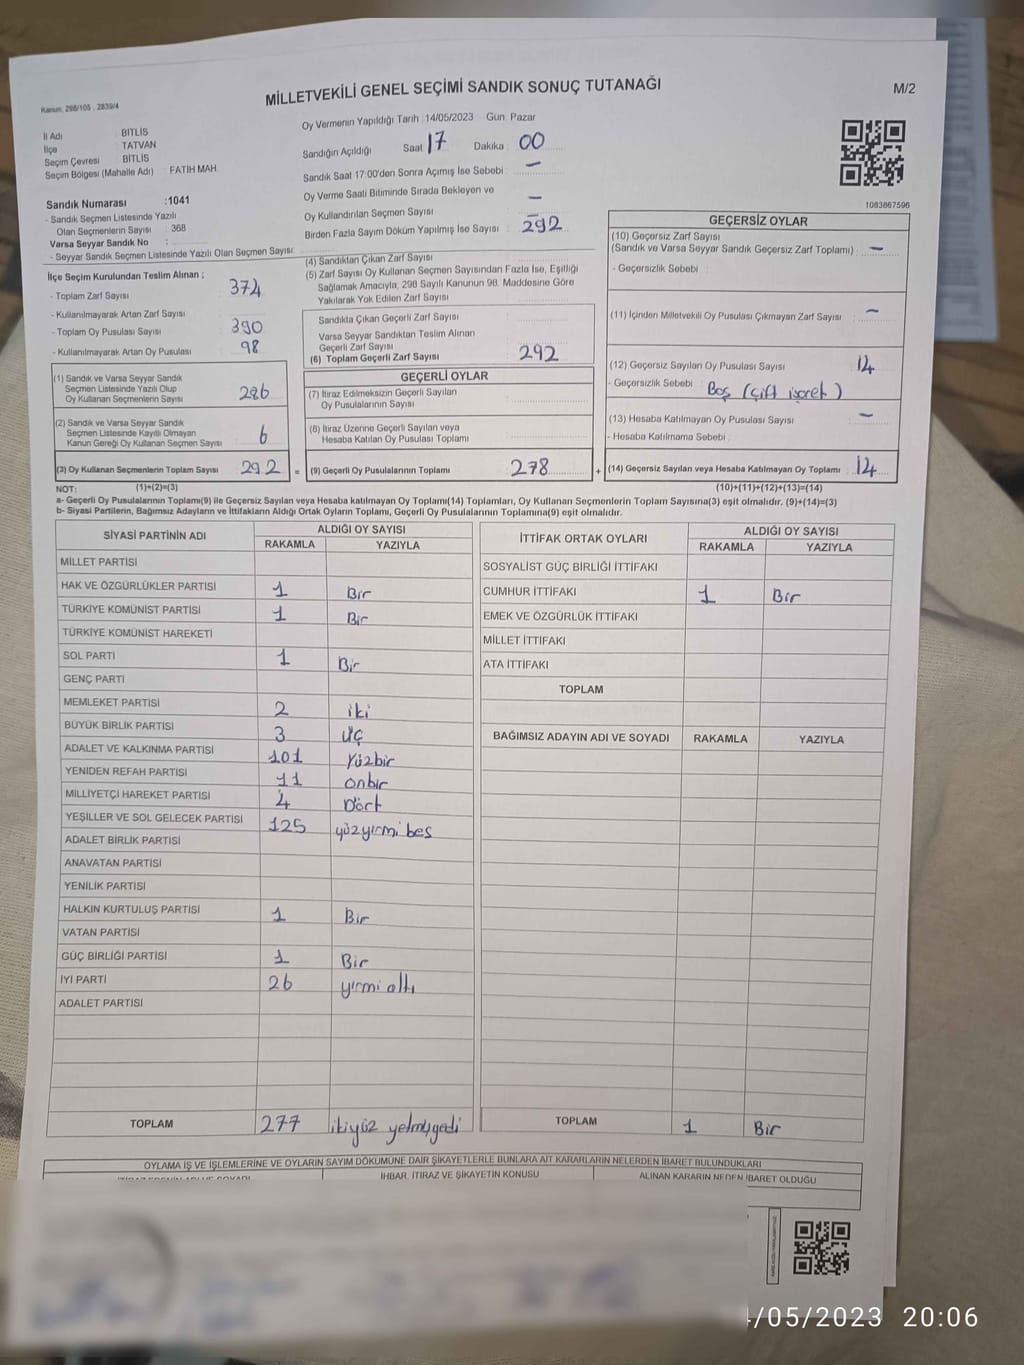 MİLLETVEKİLİ GENEL SEÇİMİ SANDIK SONUÇ TUTANAĞI
M/2
Kanun: 298/105 , 2839/4
İl Adı : BİTLİS
İlçe : TATVAN
Seçim Çevresi : BİTLİS
Seçim Bölgesi (Mahalle Adı) : FATİH MAH.
Sandık Numarası :1041
- Sandık Seçmen Listesinde Yazılı
Olan Seçmenlerin Sayısı : 368
Varsa Seyyar Sandık No :
- Seyyar Sandık Seçmen Listesinde Yazılı Olan Seçmen Sayısı:
Oy Vermenin Yapıldığı Tarih :14/05/2023 Gün: Pazar
Sandığın Açıldığı Saat 17 Dakika : 00
Sandık Saat 17:00'den Sonra Açımış İse Sebebi : —
Oy Verme Saati Bitiminde Sırada Bekleyen ve
Oy Kullandırılan Seçmen Sayısı : —
Birden Fazla Sayım Döküm Yapılmış İse Sayısı : —
1083867596
İlçe Seçim Kurulundan Teslim Alınan ;
- Toplam Zarf Sayısı 374
- Kullanılmayarak Artan Zarf Sayısı
- Toplam Oy Pusulası Sayısı 390
- Kullanılmayarak Artan Oy Pusulası 98
(1) Sandık ve Varsa Seyyar Sandık
Seçmen Listesinde Yazılı Olup
Oy Kullanan Seçmenlerin Sayısı 286
(2) Sandık ve Varsa Seyyar Sandık
Seçmen Listesinde Kayıtlı Olmayan
Kanun Gereği Oy Kullanan Seçmen Sayısı 6
(3) Oy Kullanan Seçmenlerin Toplam Sayısı 292 =
(4) Sandıktan Çıkan Zarf Sayısı : 292
(5) Zarf Sayısı Oy Kullanan Seçmen Sayısından Fazla İse, Eşitliği
Sağlamak Amacıyla, 298 Sayılı Kanunun 98. Maddesine Göre
Yakılarak Yok Edilen Zarf Sayısı :
Sandıkta Çıkan Geçerli Zarf Sayısı :
Varsa Seyyar Sandıktan Teslim Alınan
Geçerli Zarf Sayısı :
(6) Toplam Geçerli Zarf Sayısı : 292
GEÇERLİ OYLAR
(7) İtiraz Edilmeksizin Geçerli Sayılan
Oy Pusulalarının Sayısı :
(8) İtiraz Üzerine Geçerli Sayılan veya
Hesaba Katılan Oy Pusulası Toplamı :
(9) Geçerli Oy Pusulalarının Toplamı : 278 +
GEÇERSİZ OYLAR
(10) Geçersiz Zarf Sayısı
(Sandık ve Varsa Seyyar Sandık Geçersiz Zarf Toplamı) : —
- Geçersizlik Sebebi :
(11) İçinden Milletvekili Oy Pusulası Çıkmayan Zarf Sayısı : —
(12) Geçersiz Sayılan Oy Pusulası Sayısı : 14
- Geçersizlik Sebebi : Boş (Çift işaret)
(13) Hesaba Katılmayan Oy Pusulası Sayısı : —
- Hesaba Katılmama Sebebi :
(14) Geçersiz Sayılan veya Hesaba Katılmayan Oy Toplamı : 14
NOT: (1)+(2)=(3)
(10)+(11)+(12)+(13)=(14)
a- Geçerli Oy Pusulalarının Toplamı(9) ile Geçersiz Sayılan veya Hesaba katılmayan Oy Toplamı(14) Toplamları, Oy Kullanan Seçmenlerin Toplam Sayısına(3) eşit olmalıdır. (9)+(14)=(3)
b- Siyasi Partilerin, Bağımsız Adayların ve İttifakların Aldığı Ortak Oyların Toplamı, Geçerli Oy Pusulalarının Toplamına(9) eşit olmalıdır.
SİYASİ PARTİNİN ADI ALDIĞI OY SAYISI
RAKAMLA YAZIYLA
MİLLET PARTİSİ
HAK VE ÖZGÜRLÜKLER PARTİSİ 1 Bir
TÜRKİYE KOMÜNİST PARTİSİ 1 Bir
TÜRKİYE KOMÜNİST HAREKETİ
SOL PARTİ 1 Bir
GENÇ PARTİ
MEMLEKET PARTİSİ 2 iki
BÜYÜK BİRLİK PARTİSİ 3 Üç
ADALET VE KALKINMA PARTİSİ 101 Yüzbir
YENİDEN REFAH PARTİSİ 11 onbir
MİLLİYETÇİ HAREKET PARTİSİ 4 Dört
YEŞİLLER VE SOL GELECEK PARTİSİ 125 yüzyirmi bes
ADALET BİRLİK PARTİSİ
ANAVATAN PARTİSİ
YENİLİK PARTİSİ
HALKIN KURTULUŞ PARTİSİ 1 Bir
VATAN PARTİSİ
GÜÇ BİRLİĞİ PARTİSİ 1 Bir
İYİ PARTİ 26 yırmi altı
ADALET PARTİSİ
TOPLAM 277 ikiyüz yetmişyedi
İTTİFAK ORTAK OYLARI ALDIĞI OY SAYISI
RAKAMLA YAZIYLA
SOSYALİST GÜÇ BİRLİĞİ İTTİFAKI
CUMHUR İTTİFAKI 1 Bir
EMEK VE ÖZGÜRLÜK İTTİFAKI
MİLLET İTTİFAKI
ATA İTTİFAKI
TOPLAM
BAĞIMSIZ ADAYIN ADI VE SOYADI RAKAMLA YAZIYLA
TOPLAM 1 Bir
OYLAMA İŞ VE İŞLEMLERİNE VE OYLARIN SAYIM DÖKÜMÜNE DAİR ŞİKAYETLERLE BUNLARA AİT KARARLARIN NELERDEN İBARET BULUNDUKLARI
İHBAR, İTİRAZ VE ŞİKAYETİN KONUSU ALINAN KARARIN NEDEN İBARET OLDUĞU
/05/2023 20:06